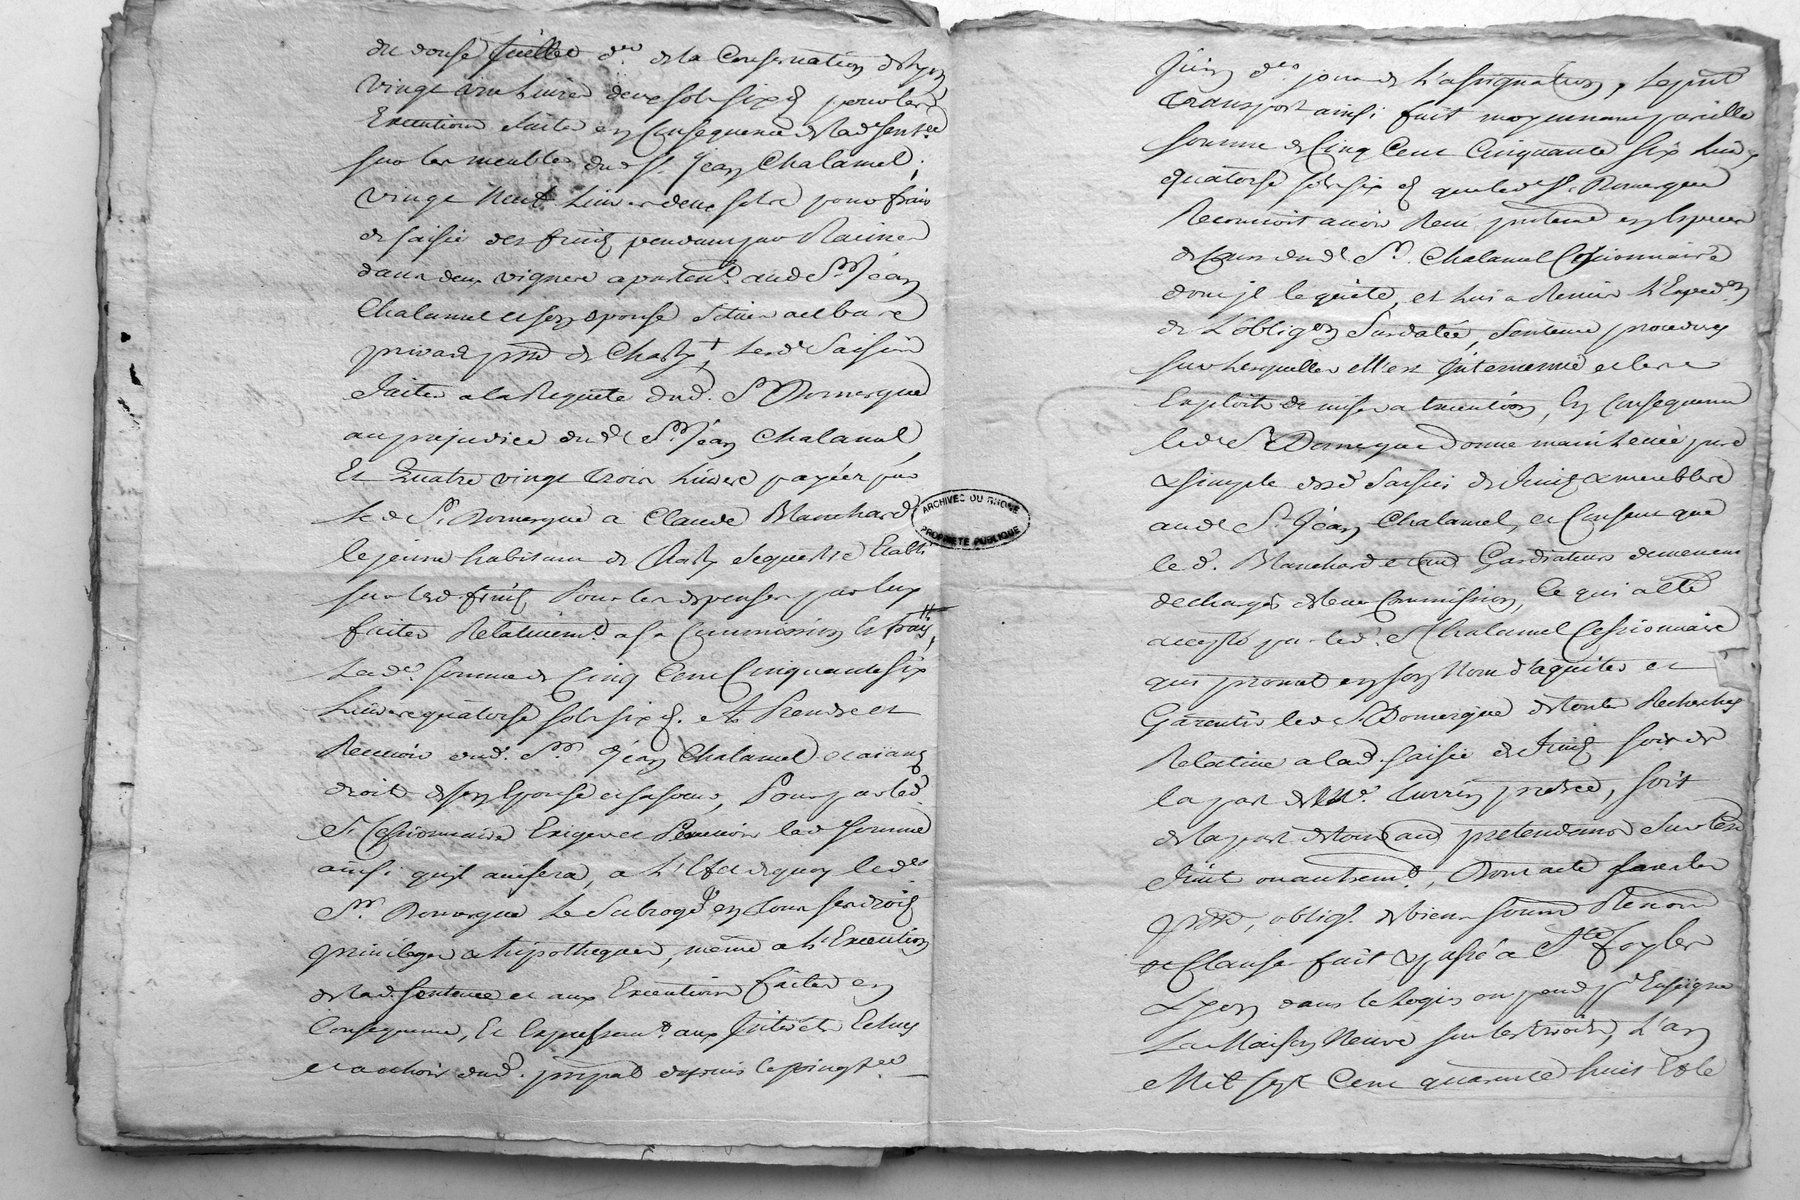 du douse Juillet d.er de la Conservation de Lyon
vingt une Livres deux sols six d pour les
Executions faites en Consequence de lad.e Sent.ce
sur les meubles dud S.r Jean Chalamel;
vingt neuf Livres deux sols pour frais
de saisie des fruits pendants par Racines
dans deux vignes apartent.s aud S.r Jean
Chalamel et son epouse
de Charly Lesd.s Saisies
faites a la Requete dud. S.r Romergue
au prejudice dud S.r Jean Chalamel
Et Quatre vingt trois Livres payées par
le d S.r Romergue a Claude Blanchard
le jeune habitant de Charly sequestre Etabli
sur lesd fruits Pour les depenses par luy
faites Relativem.t a sa Commission et frais,
Lad.e somme de Cinq Cent Cinquante six
Livres quatorse sols six d. et a Prendre et
Recevoir dud. S.r Jean Chalamel et aiant
droit de son Epouse et sa sœur, Pour par led
S.r Cessionnaire Exiger et Percevoir lad somme
ainsi qu'il avisera, a L'Effet de quoy led.
S.r Romergue Le Subroge en tous ses droits
privileges et hipotheques, meme a L'Execution
de lad. sentence et aux Executions faites en
Consequence, Et Expressem.t aux fruits et Echus
et a echoir dud. prinpal depuis le
Juin d.er jour de L'assignation, Le pnt
transport ainsi fait moyennant pareille
somme de Cinq Cent Cinquante six Livres
quatorse sols six d que led S.r Romergue
Reconnoit avoir Reçu en Especes
de Cours dud S.r Chalamel Cessionnaire
dont il le quitte, et lui a Remis L'Exped.on
de L'oblig.on Susdatée, Sentence procedures
sur Lesquelles elle est Intervenue et les
Exploits de mises a Execution, En Consequence
led S.r Romergue donne main Levée pure
& simple desd Saisies de fruits & meubles
aud S.r Jean Chalamel, et Consent que
le d. Blanchard et Gardiateurs demeurent
decharges de leur Commission, Ce qui a eté
accepté par led. S.r Chalamel Cessionnaire
qui promet en son Nom d'aquiter et
Garentir led S.r Romergue de toutes Recherches
Relative a lad. saisie de fruits soit de
la part de M.e Turrin pretre, soit
de la part de tous pretendants sur lesd
fruits ou autrem.t, Dont acte fait
oblig. de biens soum Renon
et Clause fait & passé a S.te foy les
Lyon dans le Logis ou pend p.r Enseigne
La Maison Neuve L'an
Mil sept Cent quarante huit Et le
ARCHIVES DU RHONE
PROPRIETE PUBLIQUE